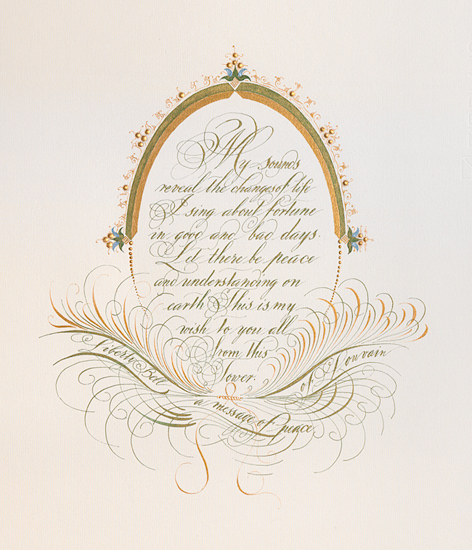 My sounds
reveal the changes of life
I sing about fortune
in good and bad days.
Let there be peace
and understanding on
earth This is my
wish to you all
from this
tower.
Liberty Bell of Louvain
a message of peace.